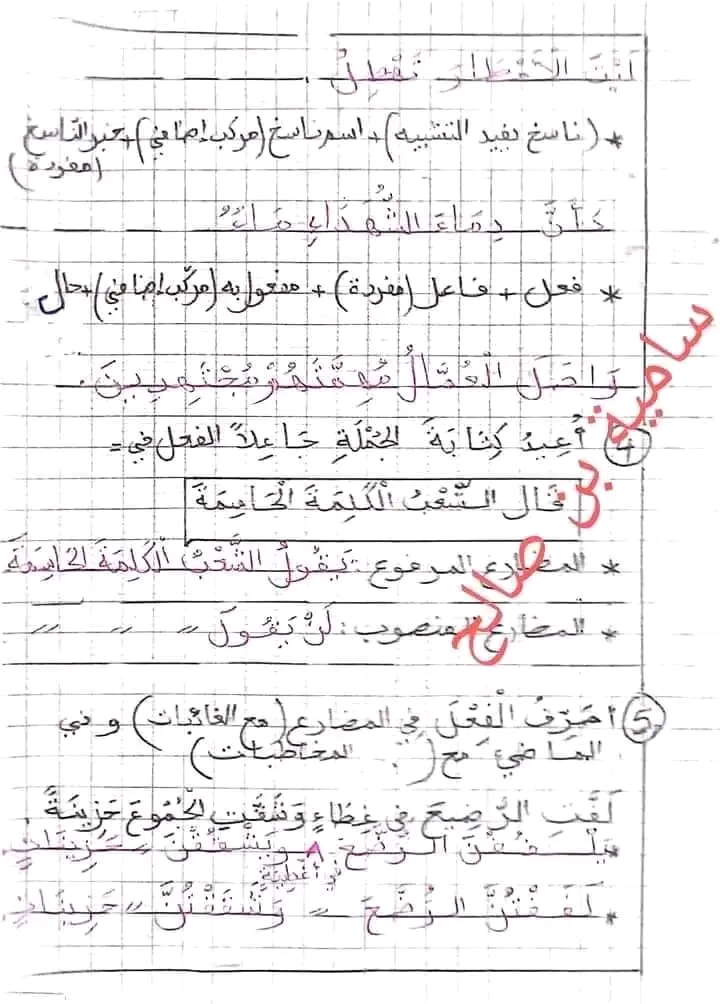 لَيْتَ الْأَمْطَارَ تَهْطِلُ
* (ناسخ يفيد التشبيه) + اسم ناسخ (مركب إضافي) + خبر الناسخ (مفردة)
كَأَنَّ دِمَاءَ الشُّهَدَاءِ مَاءٌ
* فعل + فاعل (مفردة) + مفعول به (مركّب إضافي) + حال
وَاصَلَ الْعُمَّالُ مُهِمَّتَهُمْ مُجْتَهِدِينَ .
④ أُعِيدُ كِتَابَةَ الجُمْلَةِ جَاعِلاً الفعل في =
قَالَ الشَّعْبُ الْكَلِمَةَ الْحَاسِمَةَ
* المضارع المرفوع : يَقُولُ الشَّعْبُ الْكَلِمَةَ الحَاسِمَةَ
* المضارع المنصوب : لَنْ يَقُولَ 〃 〃 〃 〃
سامية بن صالح
⑤ أُصَرِّفُ الْفِعْلَ في المضارع (مع الغائبات) و في
الماضي مع (المخاطبات)
لَفَّتِ الرَّضِيعَ فِي غِطَاءٍ وَشَقَّتِ الْجُمُوعَ حَزِينَةً .
* يَلْفُفْنَ الرُّضَّعَ ʌ وَيَشْقُقْنَ 〃 حَزِينَاتٍ .
في أغطية
* لَفَفْتُنَّ الرُّضَّعَ 〃 وَشَقَقْتُنَّ 〃 حَزِينَاتٍ .